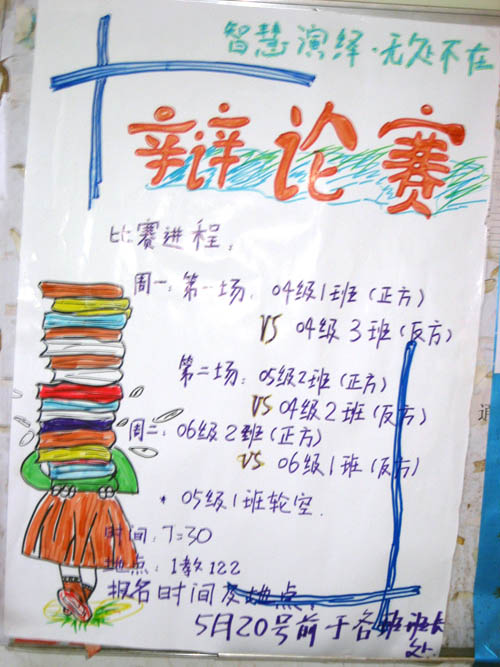 智慧演绎·无处不在
辩论赛
比赛进程:
周一:第一场:04级1班(正方)
VS 04级3班(反方)
第二场:05级2班(正方)
VS 04级2班(反方)
周二:06级2班(正方)
VS 06级1班(反方)
* 05级1班轮空.
时间:7:30
地点:1教122
报名时间及地点:
5月20号前于各班班长
处.